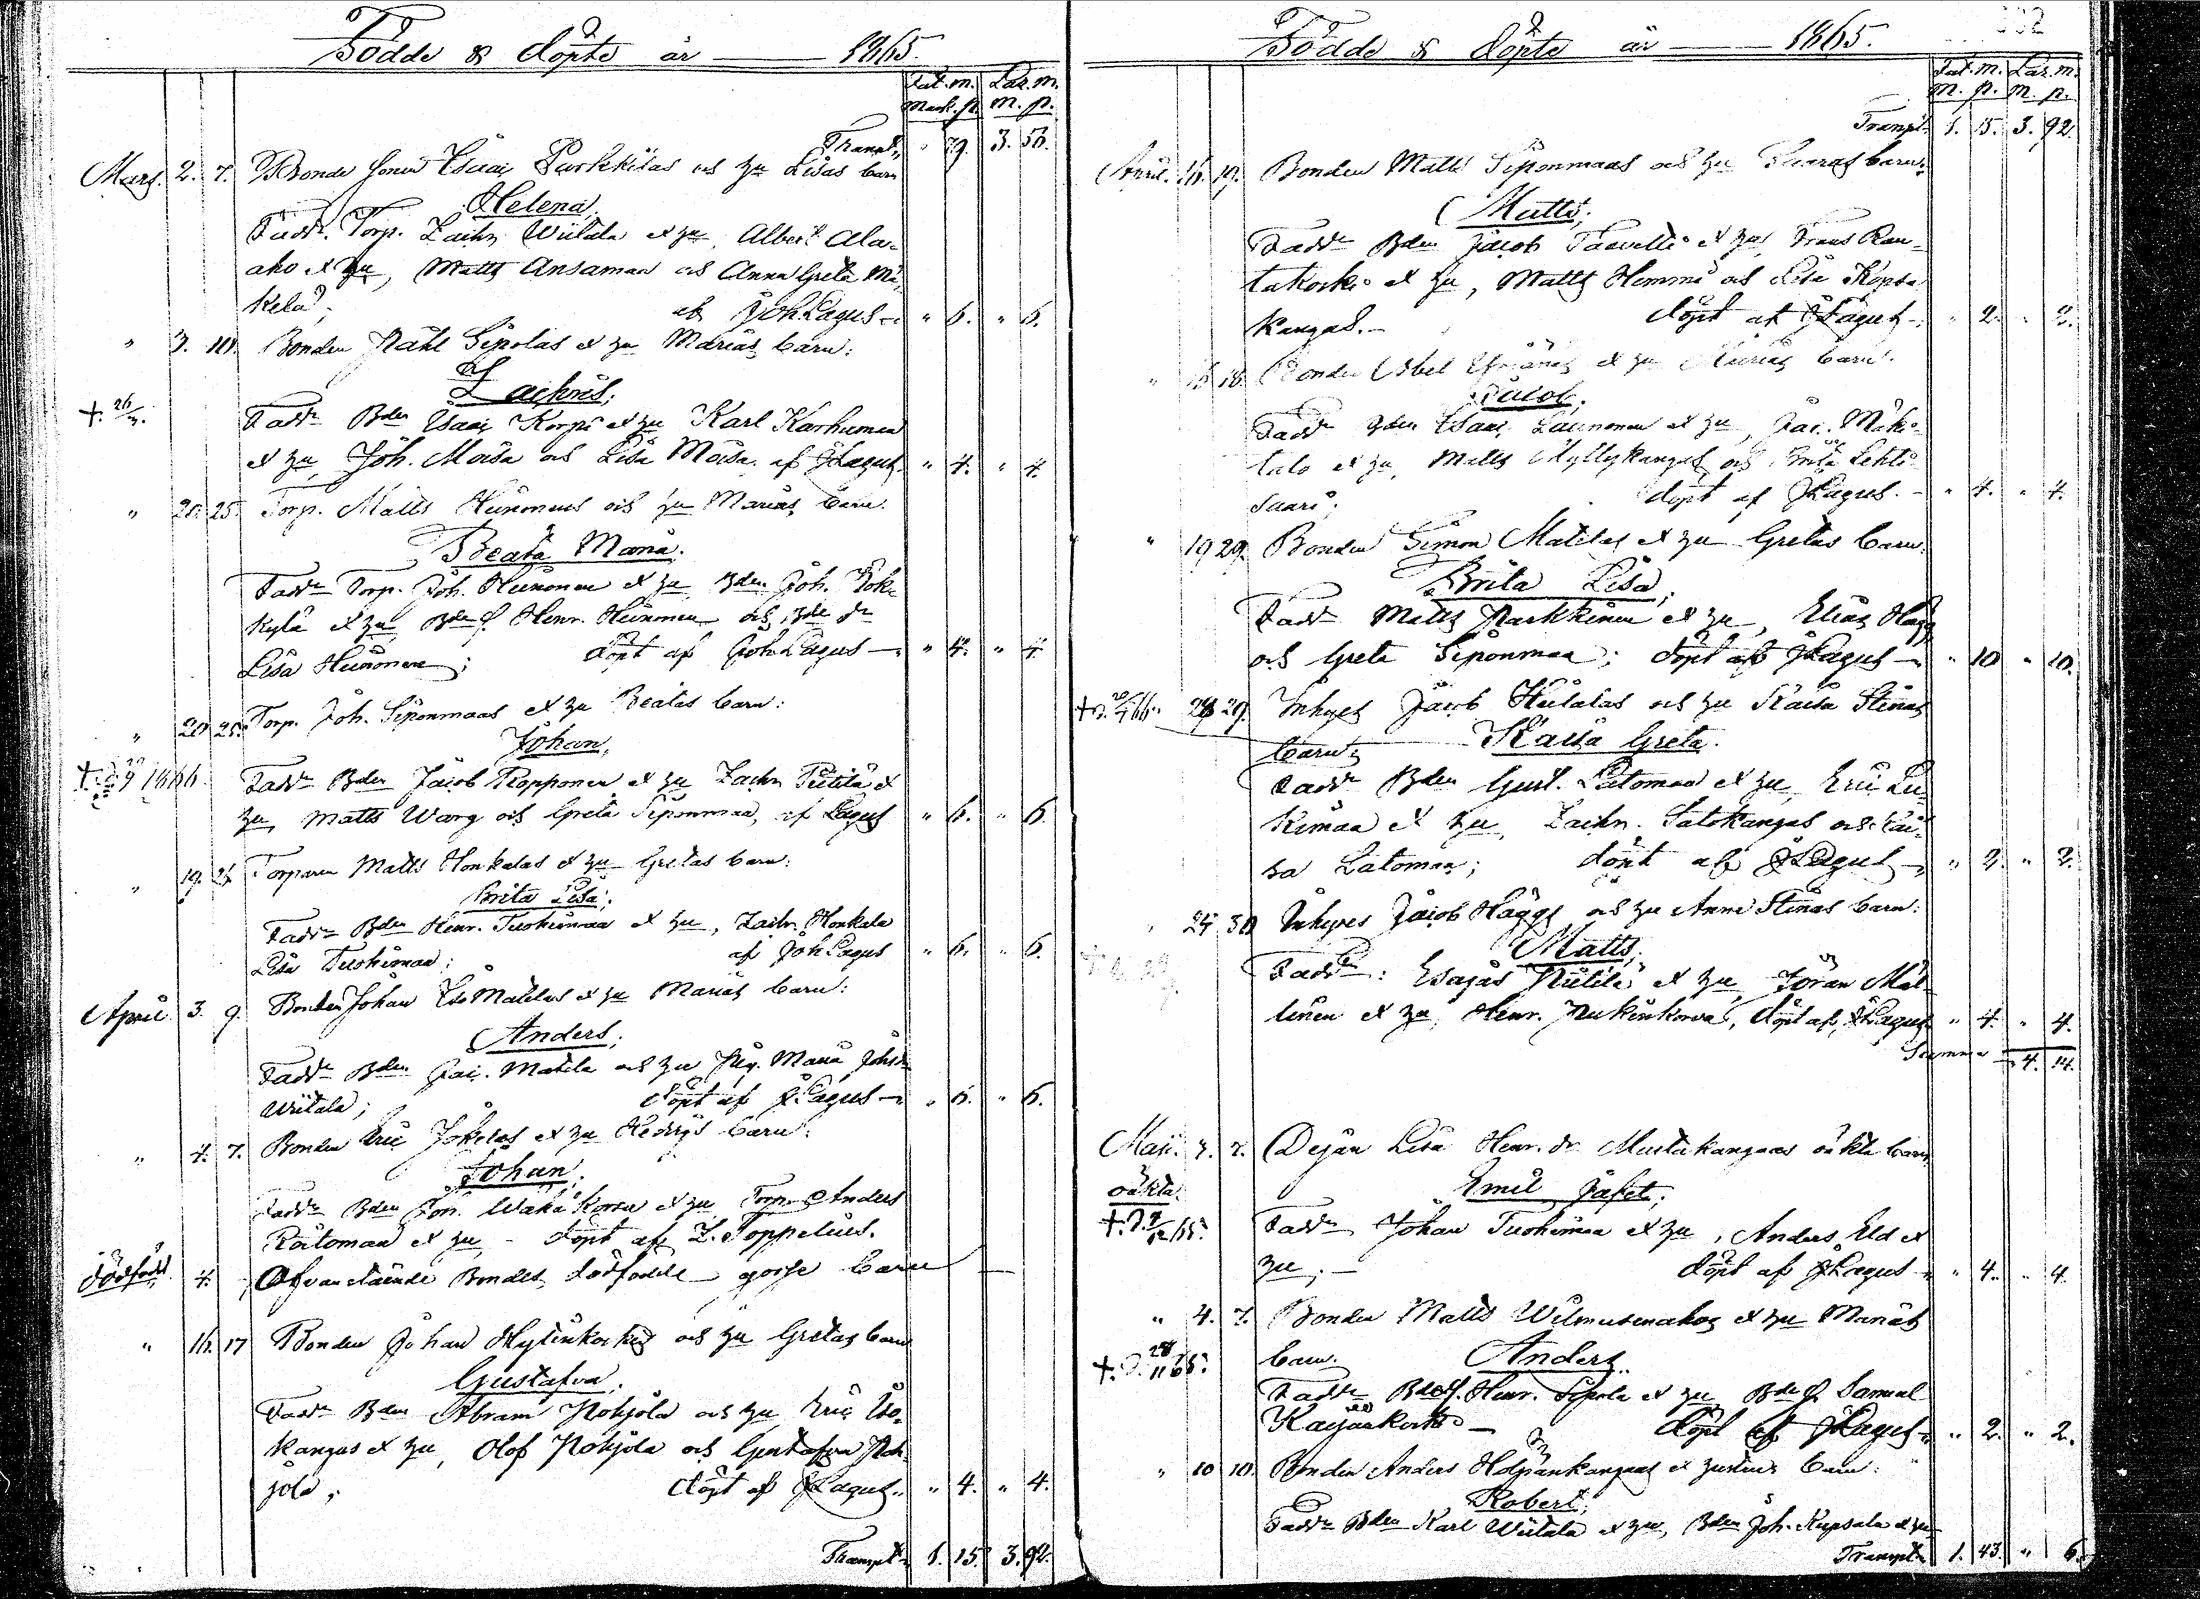 Födde & döpte år — 1865.
Fat. m. Laz. m.
Mark. p. M. p.
Transpt. " 79. 3. 56.
Mars. 2. 7. Bonde sonen Esaai Purkkilas och hu Lisas barn
Helena,
Faddr. Torp. Zachr. Wiitala et hu, Albert Ala-
aho et hu, Matts Ansamaa och Anna Greta Mä-
kelä; af Joh Lagus — " 6. " 6.
" 3. 10. Bonden Påhl Sipolas et hu Marias barn:
Zachris;
+. 26/3. Faddr Bden Esaai Korpi et hu Karl Karhumaa
et hu, Joh. Moisa och Lisa Moisa. af J Lagus. " 4. " 4.
" 20. 25. Torp. Matts Heinonens och hu Marias barn.
Beata Maria.
Faddr Torp. Joh. Heinonen et hu Bden Joh. Jok-
kylä et hu, Henr. Heinonen och
Lisa Heinonen; döpt af Joh Lagus — " 4. " 4.
" 20 25. Torp. Joh. Siponmaas et hu Beatas barn:
Johan,
1866. Faddr Bden Jacob Ropponen et hu Zachr Pietilä et
hu, Matts Warg och Greta Siponmaa, af Lagus " 6. " 6.
" 19. 25. Torparen Matts Honkalas et hu Gretas barn:
Brita Lisa;
Faddr Bden Henr. Tuohimaa et hu, Zachr. Honkala
Lisa Tuohimaa; af Joh Lagus " 6. " 6.
April 3. 9. Bonden Johan Matilas et hu Marias barn:
Anders;
Faddr Bden Jac. Matila och hu Maria
Wiitala; döpt af J. Lagus — " 6. " 6.
" 4. 7. Bonden Eric Jokelas et hu Hedvigs barn:
Johan;
Faddr Bden Joh. Wähäkorva et hu, Torp. Anders
Räitomaa et hu, — döpt af Z. Toppelius.
Dödfödt 4. Ofvanstående Bondes dödfödde gosse barn —
" 16. 17 Bonden Johan Hylinkoskis och hu Gretas barn
Gustafva.
Faddr Bden Abram Pohjola och hu, Eric Iso-
kangas et hu, Olof Pohjola och Gustafva Poh-
jola; döpt af J Lagus. " 4. " 4.
Transpt. 1. 15. 3. 92.
Födde & döpte år — 1865.
Fat. m. Laz. m.
M. p. M. p.
Transpt. 1. 15. 3. 92.
April. 16. 19. Bonden Matts Siponmaas och hu Saaras barn:
Matts;
Faddr Bden Jacob Taavetti et hu, Frans Ran-
takoski et hu, Matts Hemmi och Lisa Kopsa
kangas. — döpt af J Lagus — " 2. " 2.
" 16 18. Bonden Abel et hu Marias barn.
Jacob;
Faddr Bden Esaai Launonen et hu, Jac. Mäki-
talo et hu, Matts Myllykangas och Brita Lehto
saari; döpt af J Lagus. — " 4. " 4.
" 19 29. Bonden Simon Matilas et hu Gretas barn.
Brita Lisa;
Faddr Matts Parkkinen et hu, Elias Hägg
och Greta Siponmaa; döpt af J Lagus — " 10 " 10.
66. 28 29. Inhyses Jacob Hietalas och hu Kaisa Stinas
barn; Kaisa Greta.
Faddr Bden Gust. Latomaa et hu, Eric Lu-
kimaa et hu, Zachr. Satokangas och Kai-
sa Latomaa; döpt af J Lagus — " 2. " 2.
" 24 30 Inhyses Jacob Häggs och hu Anna Stinas barn:
Matts;
Faddr: Esajas Pietilä et hu, Jöran Mat-
linen et hu, Henr. Nukinkorva, döpt af J Lagus " 4. " 4.
Summa — 4. 14.
Maij. 3. 7. Pigan Lisa Henr. dr Mustakangas oäkta barn
oäkta. Emil Jafet;
Faddr Johan Tuohimaa et hu, Anders Eld et
hu; — döpt af J Lagus — " 4. " 4
" 4. 7. Bonden Matts Wilmusenahos et hu Marias
barn. Anders.
Faddr Henr. Sipola et hu, Samuel
döpt af J Lagus — " 2. " 2.
" 10 10. Bonden Anders Holpankangas et hustrus barn:
Robert;
Faddr Bden Karl Wiitala et hu, Bden Joh. Kupsala et hu
Transpt. 1. 43. " 6.